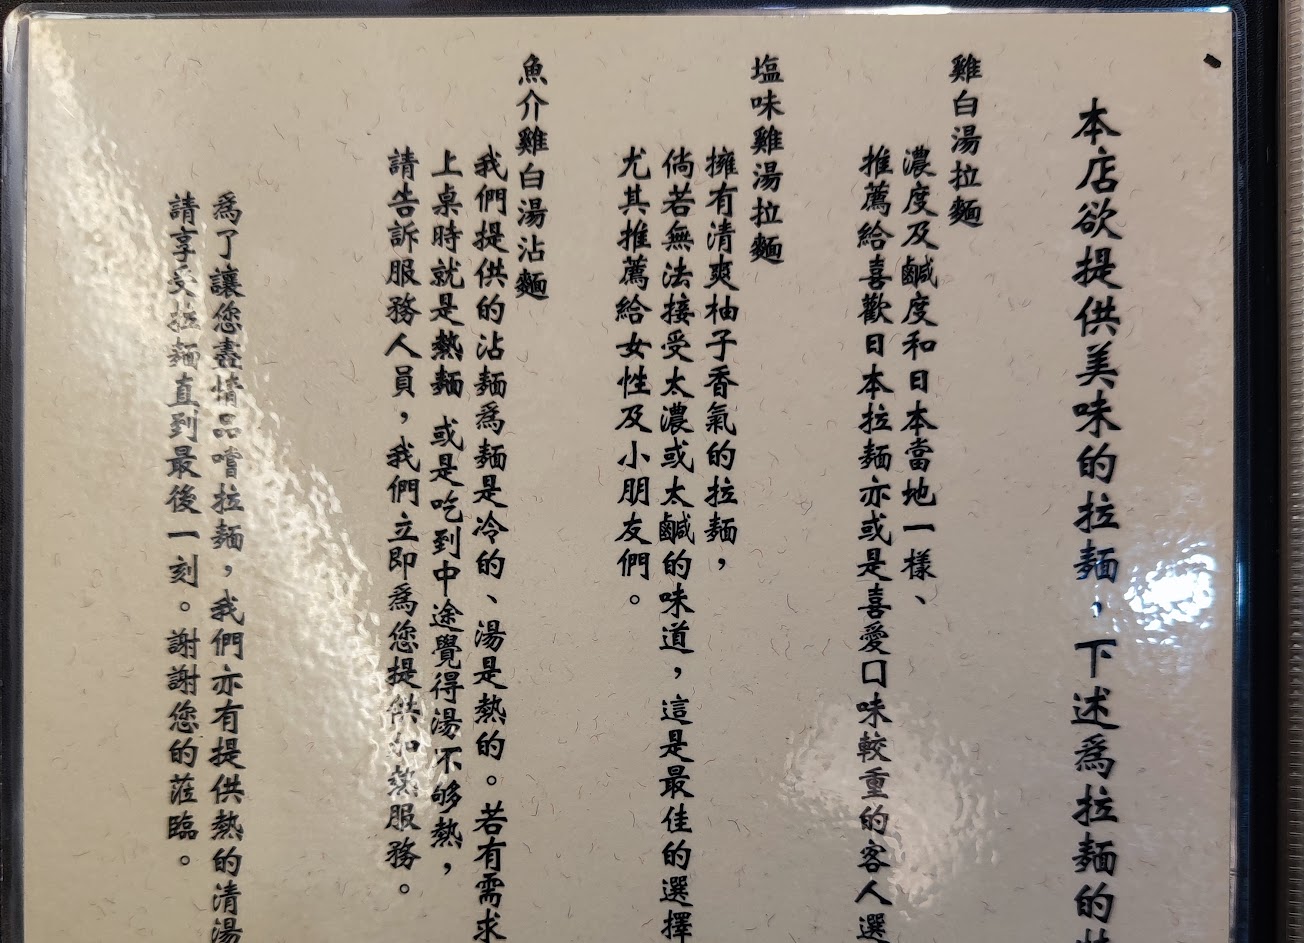 本店欲提供美味的拉麵，下述爲拉麵的
雞白湯拉麵
濃度及鹹度和日本當地一樣、
推薦給喜歡日本拉麵亦或是喜愛口味較重的客人選
塩味雞湯拉麵
擁有清爽柚子香氣的拉麵，
倘若無法接受太濃或太鹹的味道，這是最佳的選擇
尤其推薦給女性及小朋友們。
魚介雞白湯沾麵
我們提供的沾麵爲麵是冷的、湯是熱的。若有需求
上桌時就是熱麵 或是吃到中途覺得湯不够熱，
請告訴服務人員，我們立即爲您提供加熱服務。
爲了讓您盡情品嚐拉麵，我們亦有提供熱的清湯
請享受拉麵直到最後一刻。謝謝您的蒞臨。